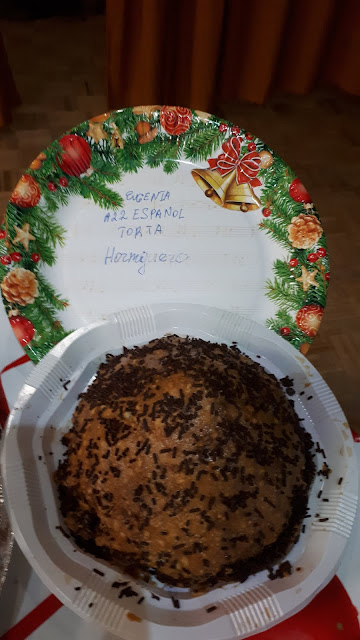 EUGENIA
A22 ESPAÑOL
TORTA
Hormiguero